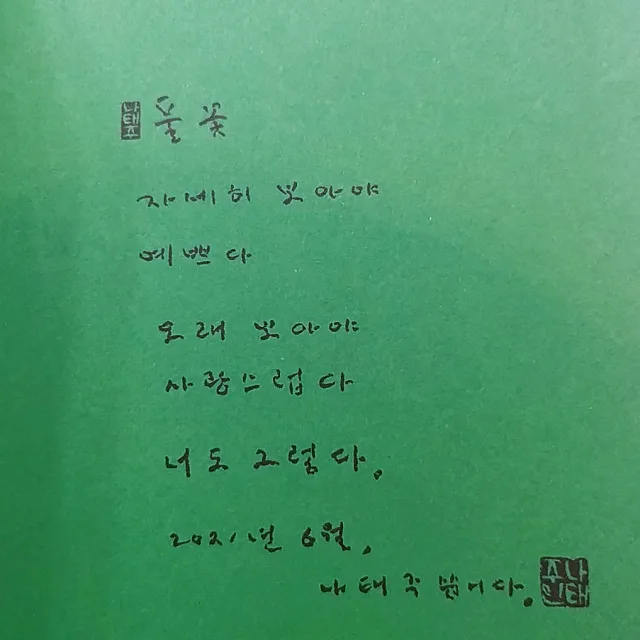 나태주 풀꽃
자세히 보아야
예쁘다
오래 보아야
사랑스럽다
너도 그렇다.
2021년 6월,
나태주 씁니다.
나태주인